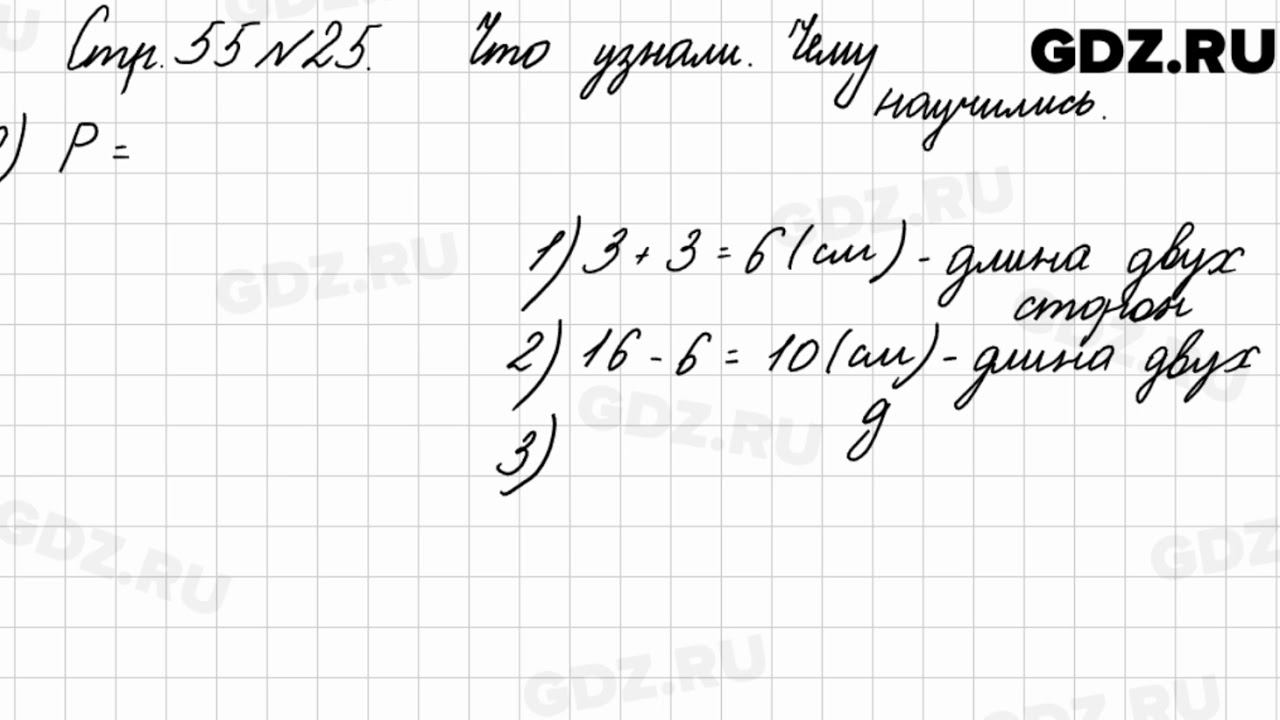 Стр. 55 №25. Что узнали. Чему научились.
GDZ.RU
) P =
1) 3 + 3 = 6 (см) - длина двух
сторон
2) 16 - 6 = 10 (см) - длина двух
д
3)